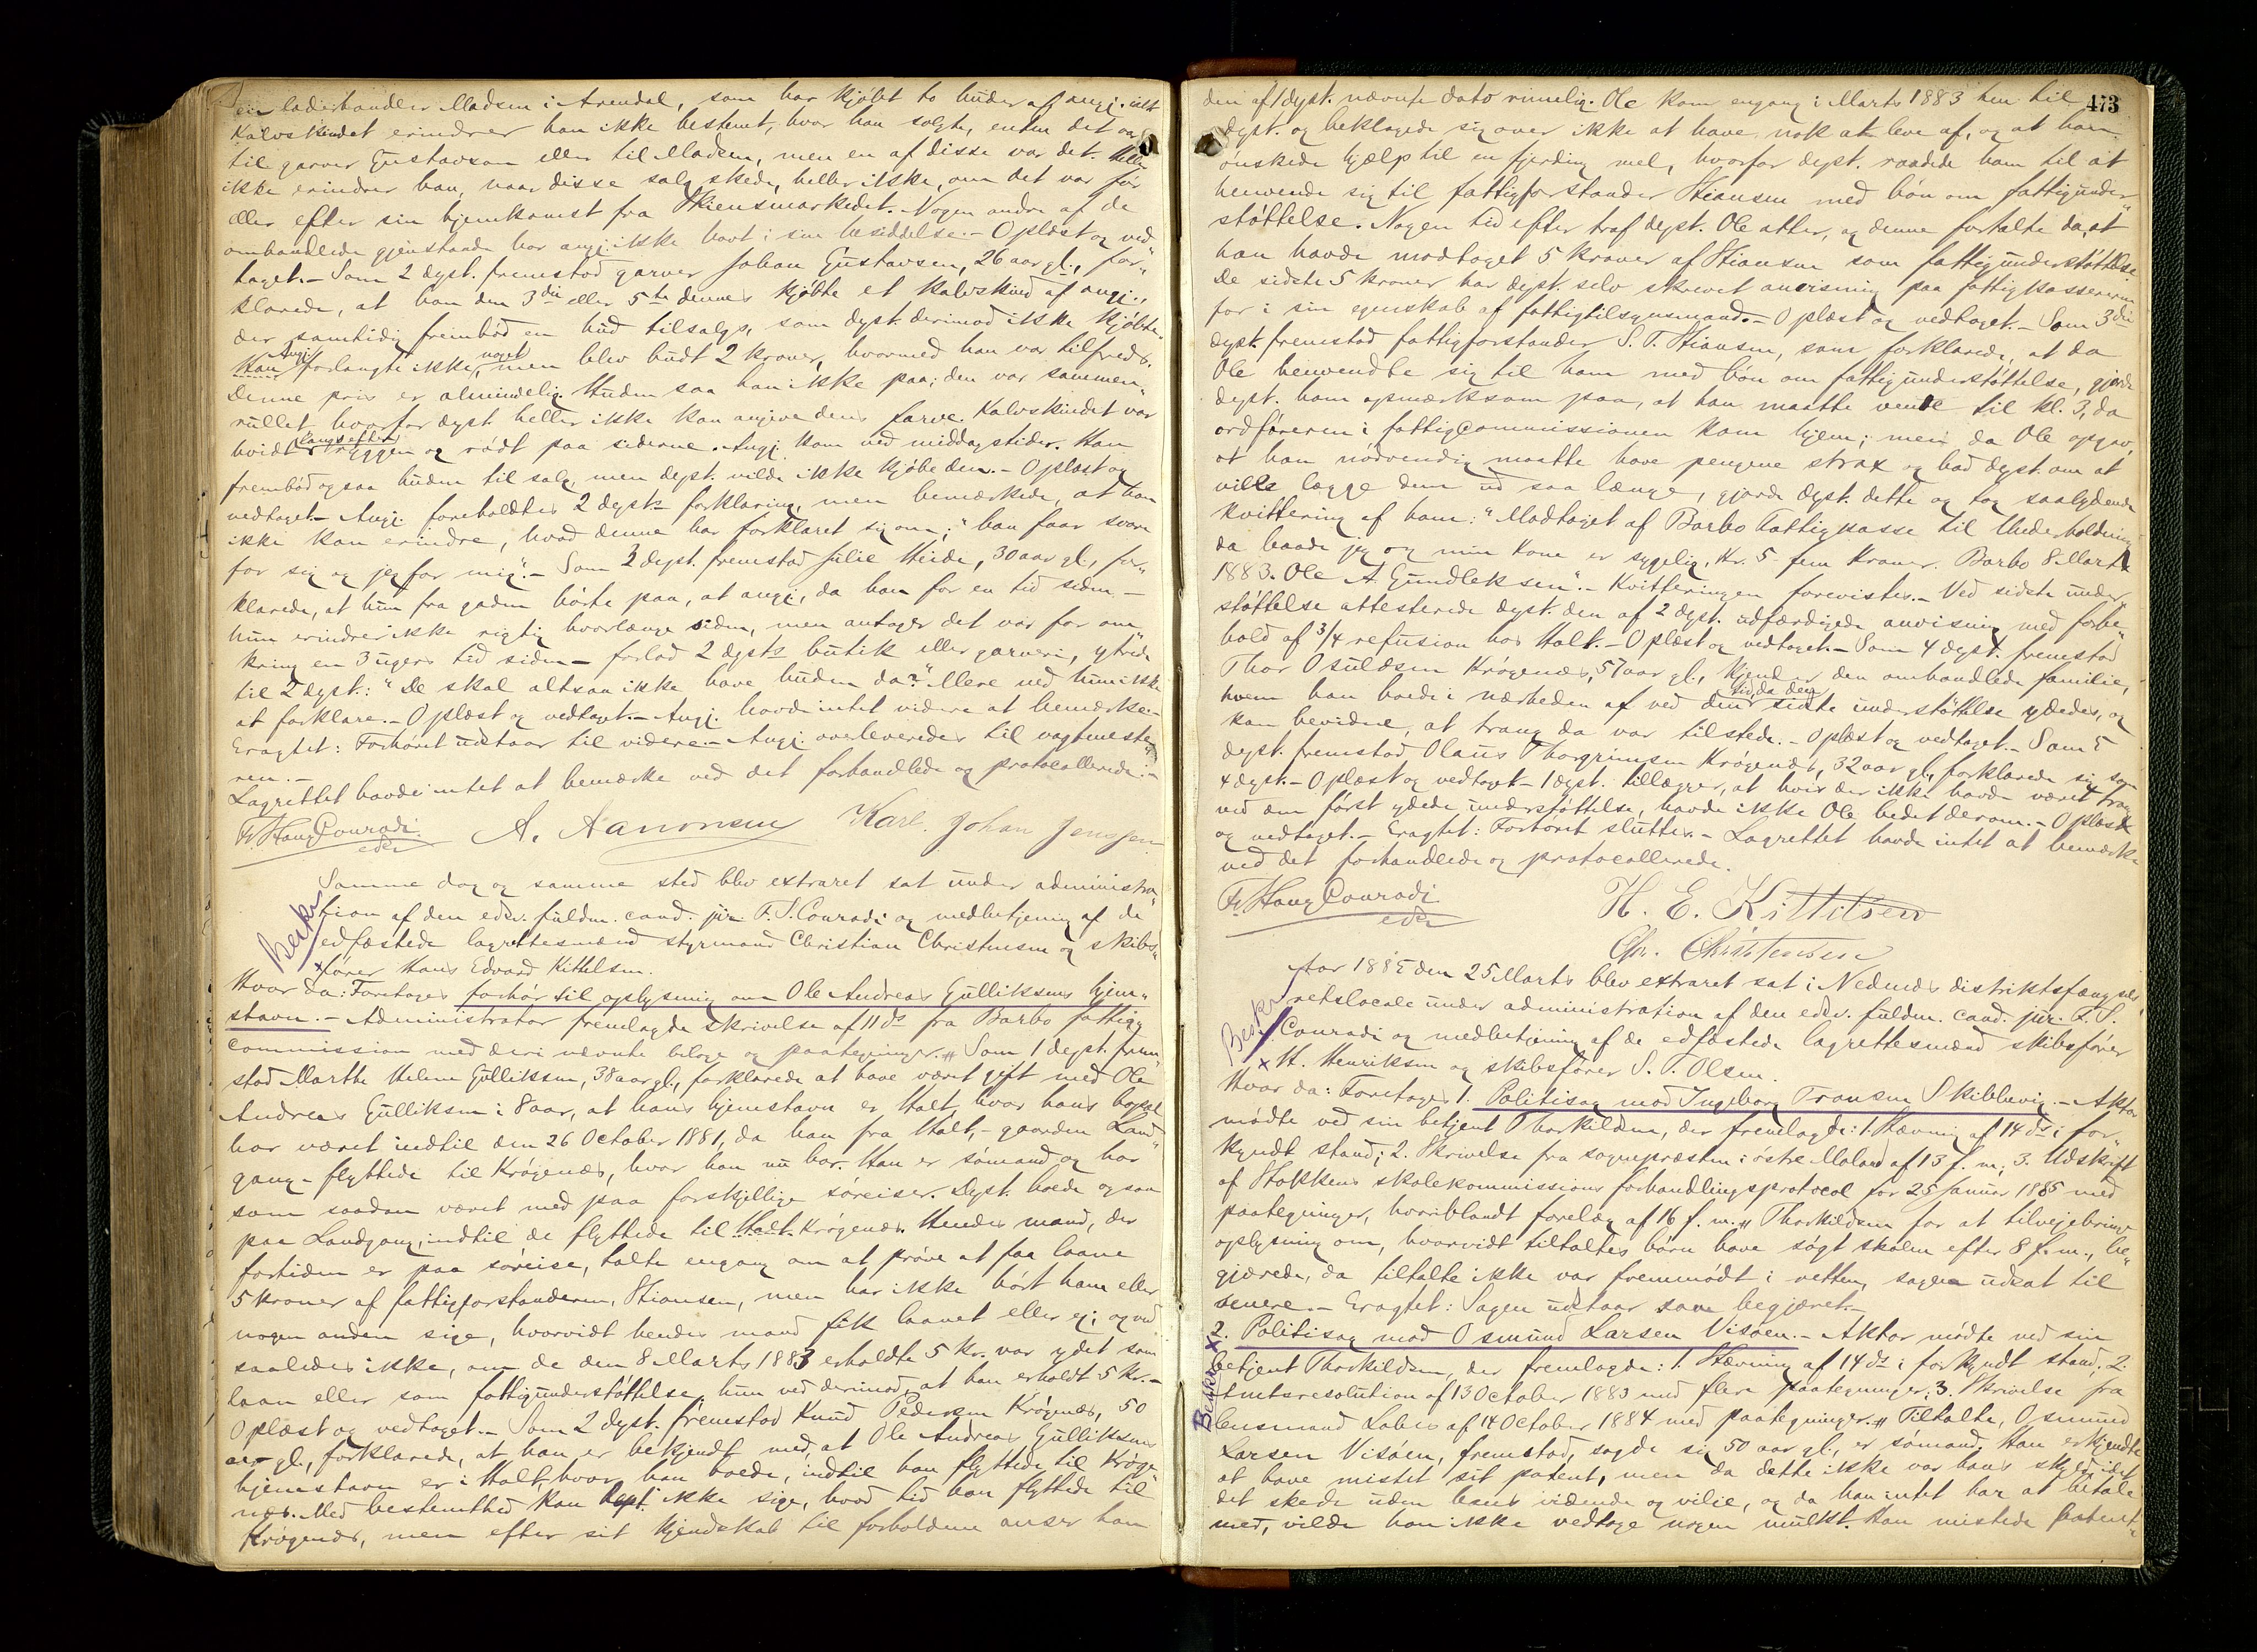 en læderhandler Madsen i Arendal, som har kjøbt to huder af angj. ialt
Kalvskindet erindrer han ikke bestemt, hvor han solgte, enten det var
til garver Gustavson eller til Madsen, men en af disse var det. Heller
ikke erindrer han, naar disse salg skede, heller ikke, om det var før
eller efter sin hjemkomst fra Skiensmarkedet. Nogen andre af de
omhandlede gjenstande har angj. ikke havt i sin besiddelse. – Oplæst og ved„
taget. – Som 2 dept. fremstod garver Johan Gustavsen, 26 aar gl., for„
klarede, at han den 3die eller 5te dennes kjøbte et kalvskind af angj.,
der samtidig frembød en hud tilsalgs, som dept. derimod ikke kjøbte.
Han Angj. forlangte ikke noget, men blev budt 2 kroner, hvormed han var tilfreds.
Denne pris er almindelig. Huden saa han ikke paa; den var sammen„
rullet, hvorfor dept. heller ikke kan angive dens farve. Kalvskindet var
hvidt langsefter ryggen og rødt paa siderne. Angj. kom ved middagstider. Han
frembød ogsaa huden til salg, men dept. vilde ikke kjøbe den. – Oplæst og
vedtaget. – Angj. foreholdtes 2 depts forklaring, men bemærkede, at han
ikke kan erindre, hvad denne har forklaret sig om; "han faar svare
for sig og jeg for mig". – Som 3 dept. fremstod Julie Heide, 30 aar gl., for„
klarede, at hun fra gaden hørte paa, at angj., da han for en tid siden –
hun erindrer ikke rigtig hvorlænge siden, men antager det var for om„
kring en 3 ugers tid siden – forlod 2 depts butik eller garveri, ytrede
til 2 dept.: "De skal altsaa ikke have huden da?" Mere ved hun ikke
at forklare. – Oplæst og vedtaget. – Angj. havde intet videre at bemærke. –
Eragtet: Forhøret udstaar til videre. – Angj. overleveredes til vagtmeste„
ren. –
Lagrettet havde intet at bemærke ved det forhandlede og protocollerede. –
Fr. Hang Conradi
edsv
A. Aanonsen Karl Johan Jenssen
Beskr.
Samme dag og samme sted blev extraret sat under administra„
tion af den edsv. fuldm. cand. jur. F. S. Conradi og medbetjening af de
edfæstede lagrettesmænd styrmand Christian Christensen og skibs„
x fører Hans Edvard Kittelsen.
Hvor da: Foretoges forhør til oplysning om Ole Andreas Gulliksens hjem„
stavn. – Administrator fremlagde skrivelse af 11 ds fra Barbo fattig„
commission med deri nævnte bilage og paategninger. # Som 1 dept. frem„
stod Marthe Helene Gulliksen, 38 aar gl., forklarede at have været gift med Ole
Andreas Gulliksen i 8 aar, at hans hjemstavn er Halt, hvor hans bopæl
har været indtil den 26 October 1881, da han fra Halt, – gaarden Land„
gang – flyttede til Krøgenæs, hvor han nu bor. Han er sømand og har
som saadan været med paa forskjellige søreiser. Dept. boede ogsaa
paa Landgang, indtil de flyttede til Halt. Krøgenæs. Hendes mand, der
fortiden er paa søreise, talte engang om at prøve at faa laane
5 kroner af fattigforstanderen, Stiansen, men har ikke hørt ham eller
nogen anden sige, hvorvidt hendes mand fik laanet eller ej; og ved
saaledes ikke, om de den 8 Marts 1883 erholdte 5 kr. var ydet som
laan eller som fattigunderstøttelse; hun ved derimod, at han erholdt 5 kr. –
Oplæst og vedtaget. – Som 2 dept. fremstod Knud Pedersen Krøgenæs, 50
aar gl., forklarede, at han er bekjendt med, at Ole Andreas Gulliksens
hjemstavn er i Halt, hvor han boede, indtil han flyttede til Krøge„
næs. Med bestemthed kan dept. ikke sige, hvad tid han flyttede til
Krøgenæs, men efter sit kjendskab til forholdene anser han
473
den af 1 dept. nævnte dato rimelig. Ole kom engang i Marts 1883 hen til
dept. og beklagede sig over ikke at have nok at leve af, og at han
ønskede hjælp til en fjerding mel, hvorfor dept. raadede ham til at
henvende sig til fattigforstander Stiansen med bøn om fattigunder„
støttelse. Nogen tid efter traf dept. Ole atter, og denne fortalte da, at
han havde modtaget 5 kroner af Stiansen som fattigunderstøttelse.
De sidste 5 kroner har dept. selv skrevet anvisning paa fattigkassereren
for i sin egenskab af fattigtilsynsmand. – Oplæst og vedtaget. – Som 3die
dept. fremstod fattigforstander S. T. Stiansen, som forklarede, at da
Ole henvendte sig til ham med bøn om fattigunderstøttelse, gjorde
dept. ham opmærksom paa, at han maatte vente til kl. 3, da
ordføreren i fattigcommissionen kom hjem; men da Ole opgav,
at han nødvendig maatte have pengene strax og bad dept. om at
ville lægge dem ud saa længe, gjorde dept. dette og tog saalydende
kvittering af ham: "Modtaget af Barbo Fattigkasse til Underholdning
da baade jeg og min Kone er sygelig, Kr. 5 fem Kroner. Barbo 8 Marts
1883. Ole A. Gundleksen". – Kvitteringen forevistes. – Ved sidste under„
støttelse attesterede dept. den af 2 dept. udfærdigede anvisning med forbe„
hold af 3/4 refusion hos Halt. – Oplæst og vedtaget. – Som 4 dept. fremstod
Thor Osuldsen Krøgenæs, 57 aar gl., kjender den omhandlede familie,
hvem han boede i nærheden af ved den tid, da den sidste understøttelse ydedes, og
kan bevidne, at trang da var tilstede. – Oplæst og vedtaget. – Som 5
dept. fremstod Olaus Thorgrimsen Krøgenæs, 32 aar gl., forklarede sig som
4 dept. – Oplæst og vedtaget – 1 dept. tillægger, at hvis der ikke havde været trang
ved den først ydede understøttelse, havde ikke Ole bedet derom. – Oplæst
og vedtaget. – Eragtet: Forhøret sluttes. – Lagrettet havde intet at bemærke
ved det forhandlede og protocollerede.
Fr. Hang Conradi
edsv
H. E. Kittilsen
Chr. Christensen
Beskr.
Aar 1885 den 25 Marts blev extraret sat i Nedenæs distriktsfængsels
retslocale under administration af den edsv. fuldm. cand. jur. F. S.
Conradi og medbetjening af de edfæstede lagrettesmænd skibsfører
x H. Henriksen og skibsfører S. T. Olsen.
Hvor da: Foretoges 1. Politisag mod Ingeborg Fransen Skibbuvig. – Aktor
mødte ved sin betjent Thorkildsen, der fremlagde: 1. Stævning af 14 ds i for„
kyndt stand; 2. Skrivelse fra sognepræsten i østre Moland af 13 f. m.; 3. Udskrift
af Stokkens skolekommissions forhandlingsprotocol for 25 Januar 1885 med
paategninger, hvoriblandt forelæg af 16 f. m. # Thorkildsen for at tilvejebringe
oplysning om, hvorvidt tiltaltes børn have søgt skolen efter 8 f. m., be„
gjærede, da tiltalte ikke var fremmødt i retten, sagen udsat til
senere. – Eragtet: Sagen udstaar som begjæret. –
x 2. Politisag mod Osmund Larsen Visøen. – Aktor mødte ved sin
Beskr.
betjent Thorkildsen, der fremlagde: 1. Stævning af 14 ds i forkyndt stand; 2.
Amtsresolution af 13 October 1883 med flere paategninger; 3. Skrivelse fra
lensmand Lobes af 14 October 1884 med paategninger. # Tiltalte, Osmund
Larsen Visøen, fremstod, sagde sig 50 aar gl., er sømand. Han erkjendte
at have mistet sit patent, men da dette ikke var hans skyld, idet
det skede uden hans vidende og vilje, og da han intet har at betale
med, vilde han ikke vedtage nogen mulkt. Han mistede patent„